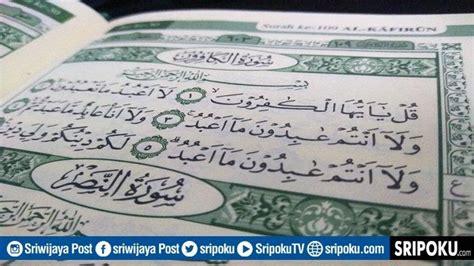 Surah ke: 109 AL-KĀFIRŪN
سُوْرَةُ الْكَافِرُوْنَ
بِسْمِ اللّٰهِ الرَّحْمٰنِ الرَّحِيْمِ
قُلْ يٰٓاَيُّهَا الْكٰفِرُوْنَۙ ١ لَآ اَعْبُدُ مَا تَعْبُدُوْنَۙ
وَلَآ اَنْتُمْ عٰبِدُوْنَ مَآ اَعْبُدُۚ ٣ وَلَآ اَنَا۠ عَابِدٌ مَّا عَبَدْ
وَلَآ اَنْتُمْ عٰبِدُوْنَ مَآ اَعْبُدُۗ ٥ لَكُمْ دِيْنُكُمْ وَلِيَ دِيْنِ
ع
سُوْرَةُ النَّصْرِ
اللّٰهِ الرَّحْمٰنِ الرَّ
Sriwijaya Post sriwijaya Post sripoku SripokuTV sripoku.com SRIPOKU.com